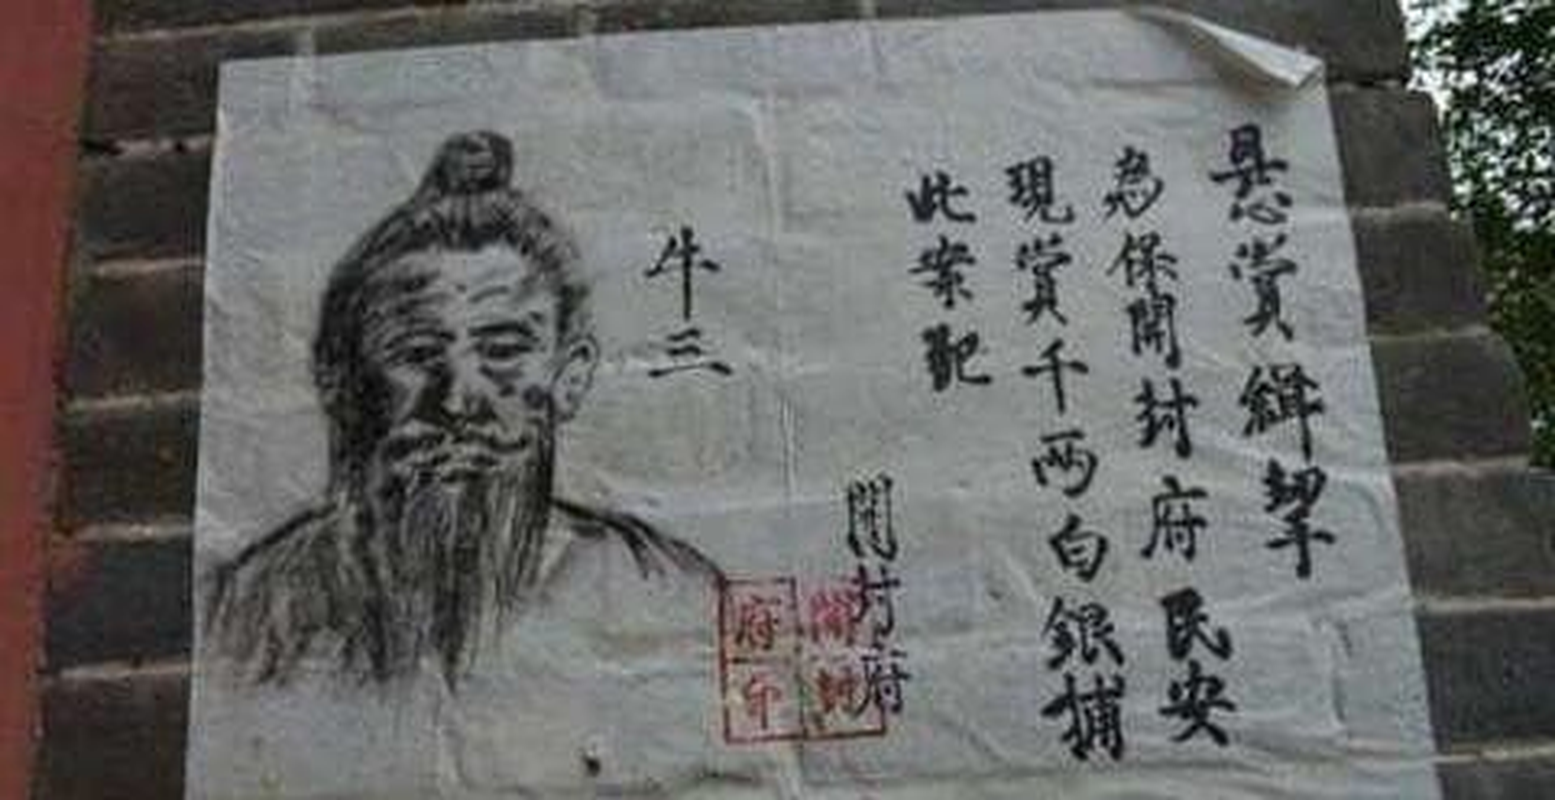 悬賞緝挈
為保開封府民安
現賞千两白銀捕
此案犯
開封府
牛三
開封
府印